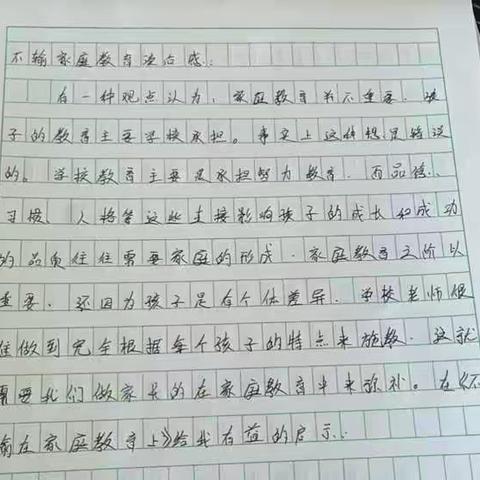 不输家庭教育读后感：
有一种观点认为，家庭教育并不重要，孩
子的教育主要学校承担。事实上这种想是错误
的。学校教育主要是承担智力教育，而品德、
习惯、人格等这些直接影响孩子的成长和成功
的品质往往需要家庭的形成，家庭教育之所以
重要，还因为孩子是有个体差异，学校老师很
难做到完全根据每个孩子的特点来施教，这就
需要我们做家长的在家庭教育中来弥补。在《不
输在家庭教育上》给我有益的启示：